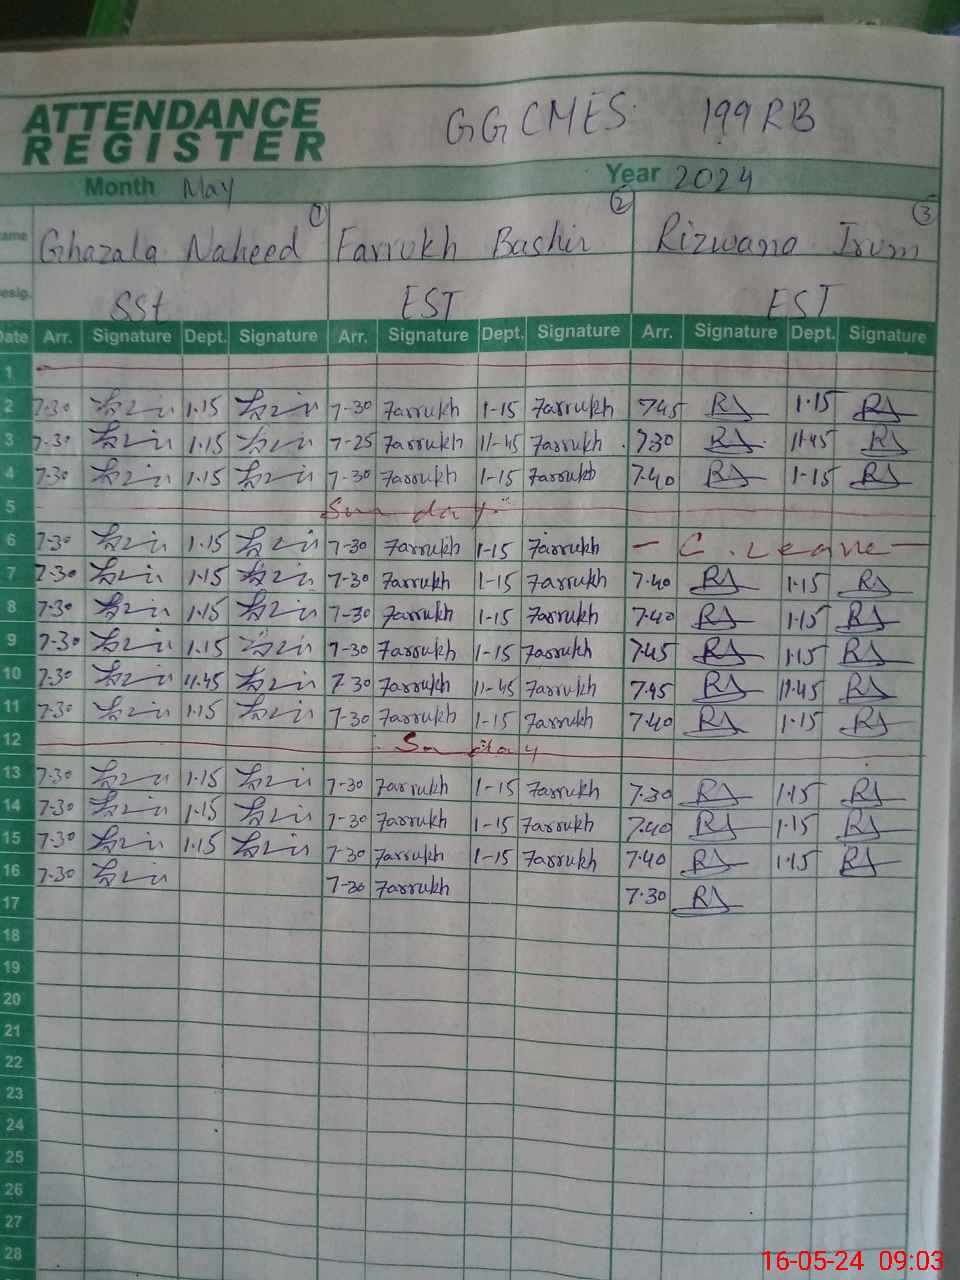 ATTENDANCE REGISTER GGCMES. 199RB
Month May Year 2024
① ② ③
ame Ghazala Naheed Farrukh Bashir Rizwana Irum
esig. SSt EST EST
Date Arr. Signature Dept. Signature Arr. Signature Dept. Signature Arr. Signature Dept. Signature
1
2 7-30 1.15 7-30 Farrukh 1-15 Farrukh 7.45 RS 1.15 RS
3 7-30 1.15 7-25 Farrukh 11-45 Farrukh 7.30 RS 11.45 RS
4 7-30 1.15 7-30 Farrukh 1-15 Farrukh 7.40 RS 1-15 RS
5 Sunday
6 7-30 1.15 7-30 Farrukh 1-15 Farrukh - C. Leave -
7 7-30 1.15 7-30 Farrukh 1-15 Farrukh 7.40 RS 1.15 RS
8 7-30 1.15 7-30 Farrukh 1-15 Farrukh 7.40 RS 1.15 RS
9 7-30 1.15 7-30 Farrukh 1-15 Farrukh 7.45 RS 1.15 RS
10 7-30 11.45 7-30 Farrukh 11-45 Farrukh 7.45 RS 11.45 RS
11 7-30 1.15 7-30 Farrukh 1-15 Farrukh 7.40 RS 1.15 RS
12 Sunday
13 7-30 1.15 7-30 Farrukh 1-15 Farrukh 7.30 RS 1.15 RS
14 7-30 1.15 7-30 Farrukh 1-15 Farrukh 7.40 RS 1.15 RS
15 7-30 1.15 7-30 Farrukh 1-15 Farrukh 7.40 RS 1.15 RS
16 7-30 7-30 Farrukh 7.30 RS
17
18
19
20
21
22
23
24
25
26
27
28
16-05-24 09:03